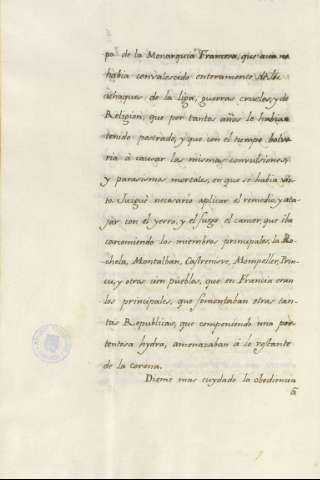 po de la Monarquia Francesa, que aun no
habia convalescido enteramente de los
athaques de la liga, guerras crueles, y de
Religion, que por tantos años le habian
tenido postrado, y que con el tiempo bolve
ria à causar las mismas convulsiones,
y parasismos mortales, en que se habia vis
to. Juzguè necesario aplicar el remedio, y ata
jar con el yerro, y el fuego el cancer, que iba
corromiendo los miembros principales, la Ro
chela, Montalban, Castrenisre, Mompeller, Prin
cu, y otras cien pueblas, que en Francia eran
los principales, que fomentaban otras tan
tas Republicas, que componiendo una por
tentosa hydra, amenazaban à lo restante
de la corona.
Dieme mas cuydado la obediencia
à